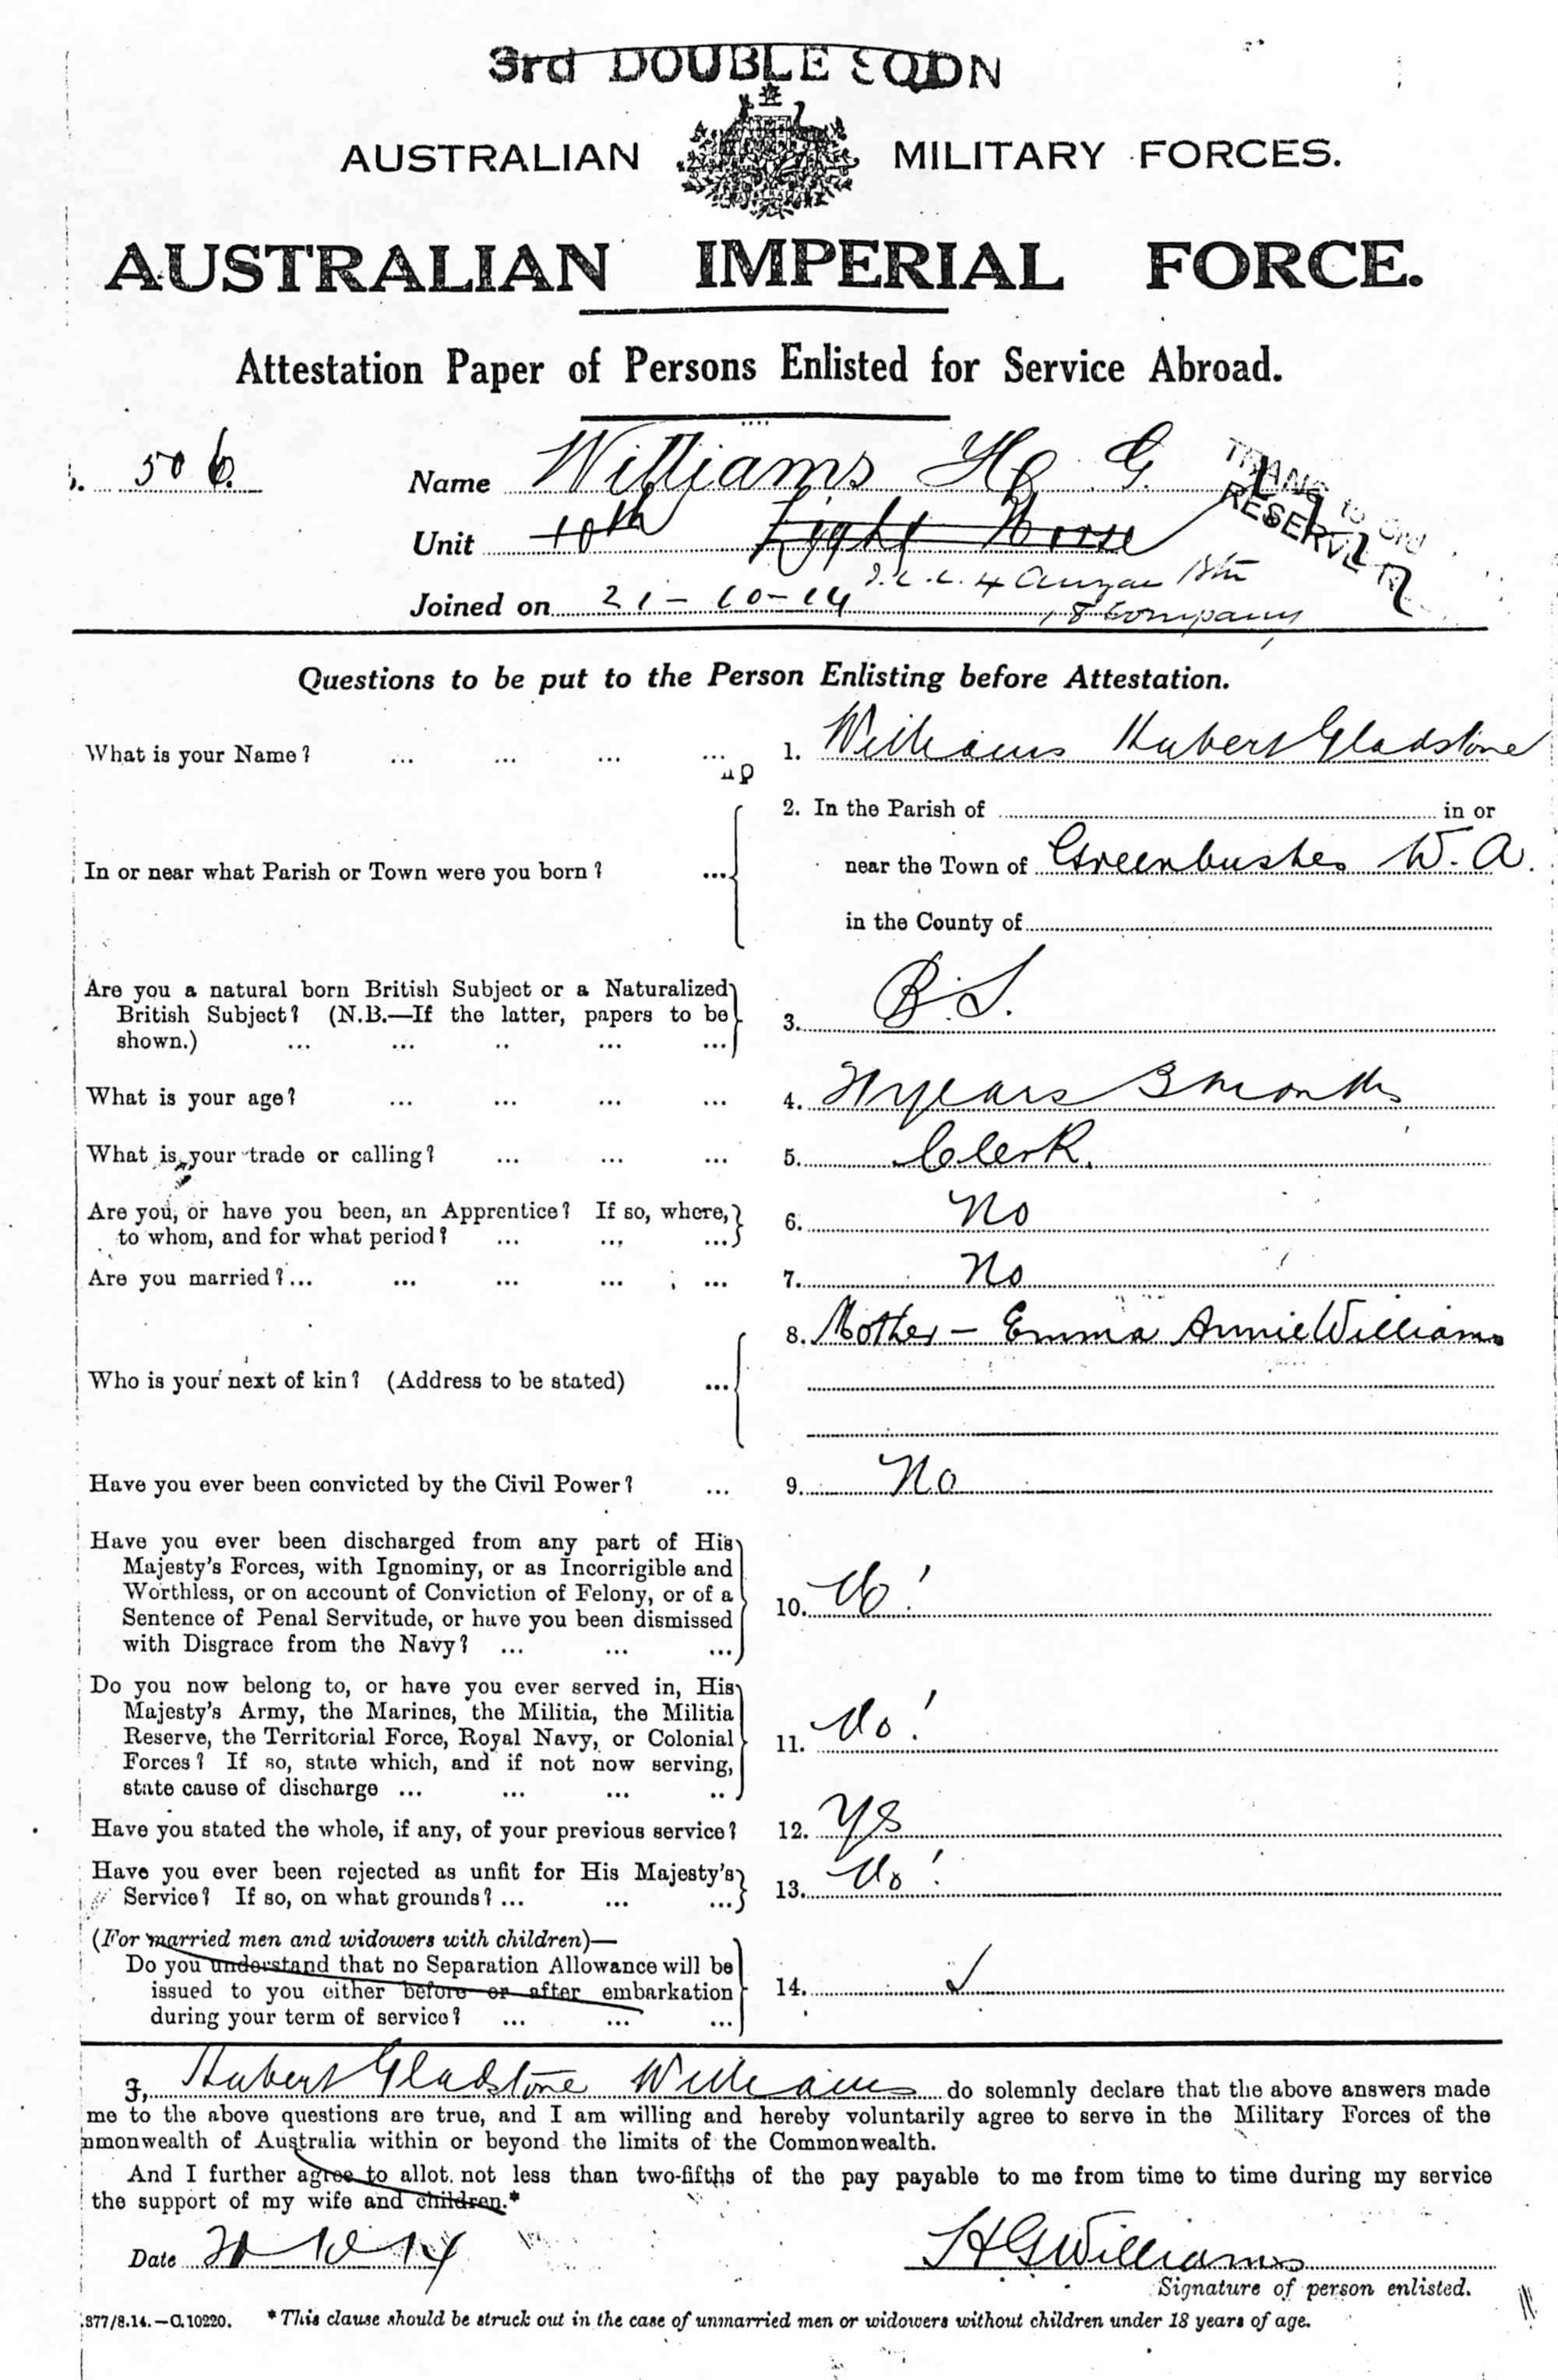 3rd DOUBLE SQDN
AUSTRALIAN MILITARY FORCES.
AUSTRALIAN IMPERIAL FORCE.
Attestation Paper of Persons Enlisted for Service Abroad.
506. Name Williams H. G.
TRANS to
RESERVE
Unit 10th Light Horse
I.C.C. 4 Anzac Btn
Joined on 21-10-14
18 Company
Questions to be put to the Person Enlisting before Attestation.
What is your Name? ... ... ... ... 1. Williams Hubert Gladstone
2. In the Parish of ... in or
In or near what Parish or Town were you born? ... near the Town of Greenbushes W.A.
in the County of
Are you a natural born British Subject or a Naturalized
British Subject? (N.B.—If the latter, papers to be 3. B.S.
shown.) ... ... .. ... ...
What is your age? ... ... ... ... 4. years 3 months
What is your trade or calling? ... ... ... 5. Clerk.
Are you, or have you been, an Apprentice? If so, where, 6. No
to whom, and for what period? ... ... ...
Are you married?... ... ... ... ... 7. No
8. Mother - Emma Annie Williams
Who is your next of kin? (Address to be stated) ...
Have you ever been convicted by the Civil Power? ... 9. No
Have you ever been discharged from any part of His
Majesty's Forces, with Ignominy, or as Incorrigible and
Worthless, or on account of Conviction of Felony, or of a 10. No!
Sentence of Penal Servitude, or have you been dismissed
with Disgrace from the Navy? ... ... ...
Do you now belong to, or have you ever served in, His
Majesty's Army, the Marines, the Militia, the Militia
Reserve, the Territorial Force, Royal Navy, or Colonial 11. No!
Forces? If so, state which, and if not now serving,
state cause of discharge ... ... ... ..
Have you stated the whole, if any, of your previous service? 12. Yes
Have you ever been rejected as unfit for His Majesty's 13. No!
Service? If so, on what grounds? ... ... ...
(For married men and widowers with children)—
Do you understand that no Separation Allowance will be
issued to you either before or after embarkation 14. ✓
during your term of service? ... ... ...
I, Hubert Gladstone Williams do solemnly declare that the above answers made
me to the above questions are true, and I am willing and hereby voluntarily agree to serve in the Military Forces of the
nmonwealth of Australia within or beyond the limits of the Commonwealth.
And I further agree to allot not less than two-fifths of the pay payable to me from time to time during my service
the support of my wife and children.*
Date 21 10 14 H G Williams
Signature of person enlisted.
377/8.14.—C.10220. *This clause should be struck out in the case of unmarried men or widowers without children under 18 years of age.